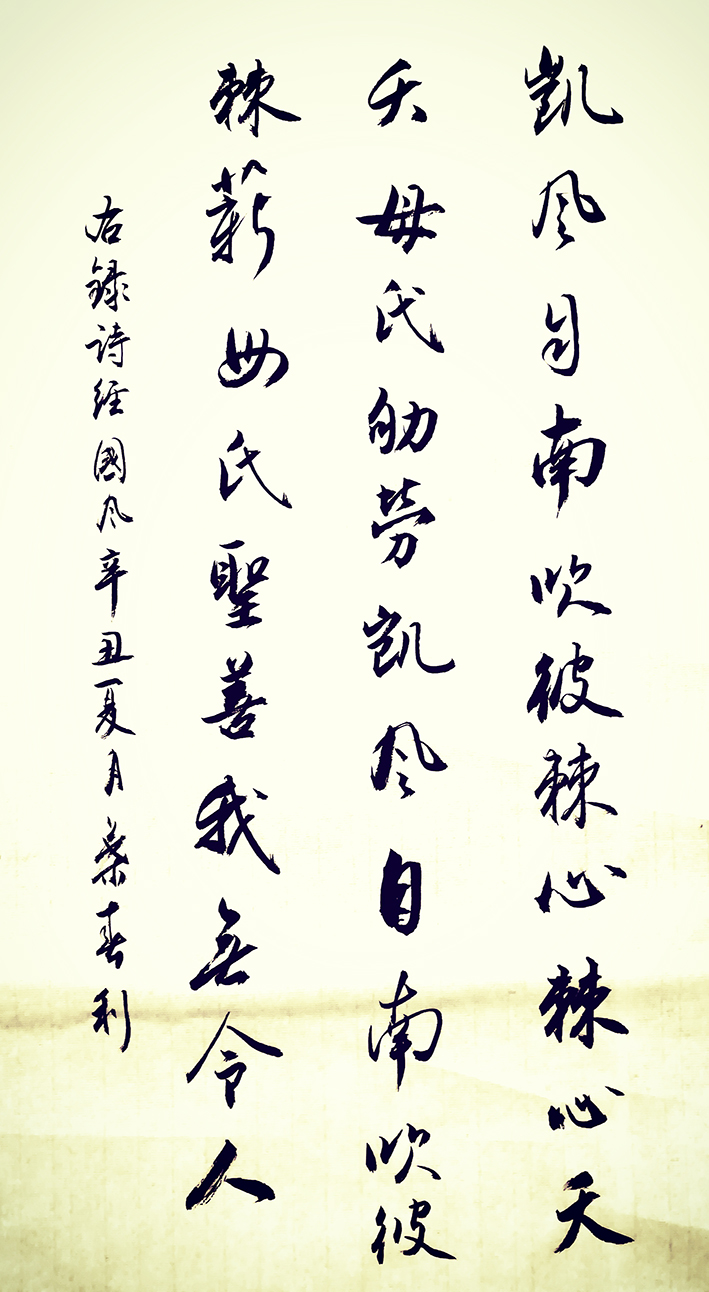 凱风自南吹彼棘心棘心夭
夭母氏劬劳凱风自南吹彼
棘薪母氏聖善我無令人
右録诗經國风辛丑夏月桑春利